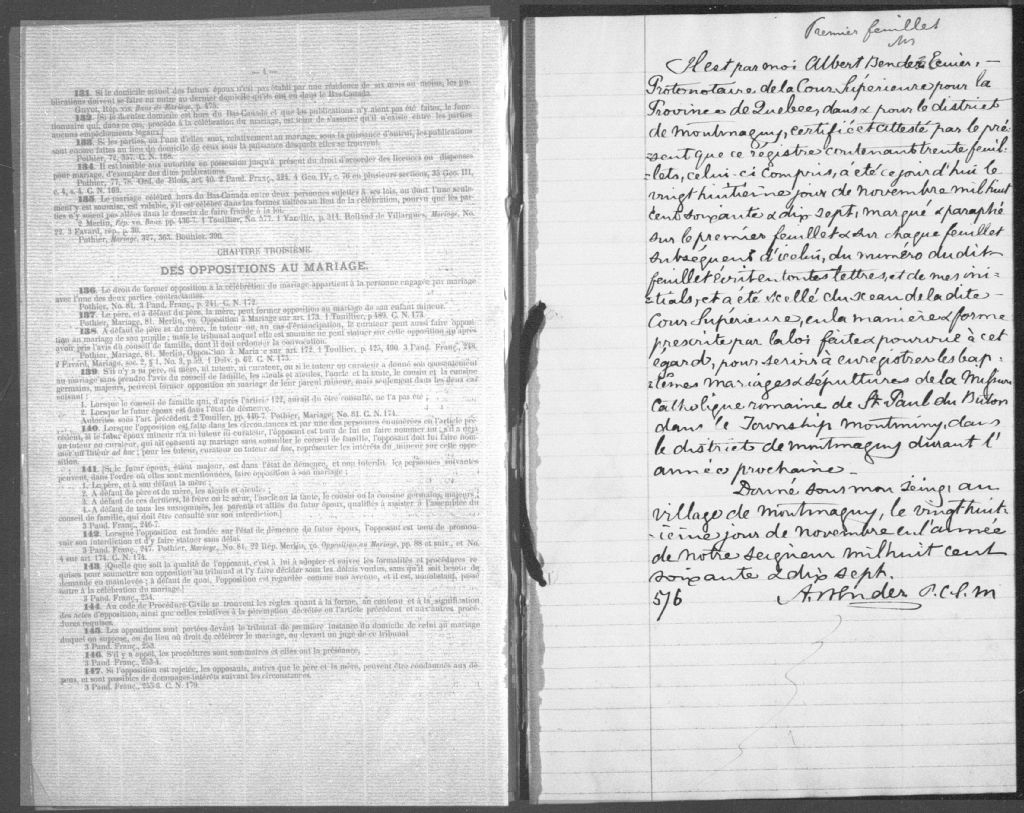 — 4 —
131. Si le domicile actuel des futurs époux n'est pas établi par une résidence de six mois au moins, les pu-
blications doivent se faire en outre au dernier domicile qu'ils ont eu dans le Bas-Canada.
Guyot, Rép. vis. Bans de Mariage, p. 475.
132. Si le dernier domicile est hors du Bas-Canada et que les publications n'y aient pas été faites, le fonc-
tionnaire qui, dans ce cas, procède à la célébration du mariage, est tenu de s'assurer qu'il n'existe entre les parties
aucuns empêchements légaux.
133. Si les parties, ou l'une d'elles, sont, relativement au mariage, sous la puissance d'autrui, les publications
sont encore faites au lieu du domicile de ceux sous la puissance desquels elles se trouvent.
Pothier, 72, 357. C. N. 168.
134. Il est loisible aux autorités en possession jusqu'à présent du droit d'accorder des licences ou dispenses
pour mariage, d'exempter des dites publications.
Pothier, 77, 78. Ord. de Blois, art. 40. 2 Pand. Franç., 324. 4 Geo. IV, c. 76 en plusieurs sections, 35 Geo. III,
c. 4, s. 4. C. N. 169.
135. Le mariage célébré hors du Bas-Canada entre deux personnes sujettes à ses lois, ou dont l'une seule-
ment y est soumise, est valable, s'il est célébré dans les formes usitées au lieu de la célébration, pourvu que les par-
ties n'y soient pas allées dans le dessein de faire fraude à la loi.
2 Merlin, Rép. vo. Bans, pp. 436-7. 1 Toullier, No. 577. 1 Vazeille, p. 314. Rolland de Villargues, Mariage, No.
22. 3 Favard, rép., p. 30.
Pothier, Mariage, 327, 363. Bouhier, 390.
CHAPITRE TROISIÈME.
DES OPPOSITIONS AU MARIAGE.
136. Le droit de former opposition à la célébration du mariage appartient à la personne engagée par mariage
avec l'une des deux parties contractantes.
Pothier, No. 81. 3 Pand. Franç., p. 241. C. N. 172.
137. Le père, et à défaut du père, la mère, peut former opposition au mariage de son enfant mineur.
Pothier, Mariage, 81. Merlin, vo. Opposition à Mariage sur art. 173. 1 Toullier, p. 489. C. N. 173.
138. A défaut de père et de mère, le tuteur ou, en cas d'émancipation, le curateur peut aussi faire opposi-
tion au mariage de son pupille; mais le tribunal auquel elle est soumise ne peut statuer sur cette opposition qu'après
avoir pris l'avis du conseil de famille, dont il doit ordonner la convocation.
Pothier, Mariage, 81. Merlin, Opposition à Mariage sur art. 172. 1 Toullier, p. 425, 490. 3 Pand. Franç., 248.
2 Favard, Mariage, sec. 2, § 1, No. 3, p. 59. 1 Delv. p. 62. C. N. 175.
139. S'il n'y a ni père, ni mère, ni tuteur, ni curateur, ou si le tuteur ou curateur a donné son consentement
au mariage sans prendre l'avis du conseil de famille, les aïeuls et aïeules, l'oncle et la tante, le cousin et la cousine
germains, majeurs, peuvent former opposition au mariage de leur parent mineur, mais seulement dans les deux cas
suivant:
1. Lorsque le conseil de famille qui, d'après l'article 122, aurait dû être consulté, ne l'a pas été;
2. Lorsque le futur époux est dans l'état de démence.
Autorités sous l'art. précédent. 2 Toullier, pp. 446-7. Pothier, Mariage, No. 81. C. N. 174.
140. Lorsque l'opposition est faite dans les circonstances et par une des personnes énumérées en l'article pré-
cédent, si le futur époux mineur n'a ni tuteur ni curateur, l'opposant est tenu de lui en faire nommer un; s'il a déjà
un tuteur ou curateur, qui ait consenti au mariage sans consulter le conseil de famille, l'opposant doit lui faire nom-
mer un tuteur ad hoc; pour les tuteur, curateur ou tuteur ad hoc, représenter les intérêts du mineur sur cette oppo-
sition.
141. [Si le futur époux, étant majeur, est dans l'état de démence, et non interdit, les personnes suivantes
peuvent, dans l'ordre où elles sont mentionnées, faire opposition à son mariage:
1. Le père, et à son défaut la mère;
2. A défaut de père et de mère, les aïeuls et aïeules;
3. A défaut de ces derniers, le frère ou la sœur, l'oncle ou la tante, le cousin ou la cousine germains, majeurs;
4. A défaut de tous les susnommés, les parents et alliés du futur époux, qualifiés à assister à l'assemblée du
conseil de famille, qui doit être consulté sur son interdiction.]
3 Pand. Franç., 246-7.
142. Lorsque l'opposition est fondée sur l'état de démence du futur époux, l'opposant est tenu de promou-
voir son interdiction et d'y faire statuer sans délai.
3 Pand. Franç., 247. Pothier, Mariage, No. 81. 22 Rép. Merlin, vo. Opposition au Mariage, pp. 88 et suiv., et No.
4 sur art. 174. C. N. 174.
143. [Quelle que soit la qualité de l'opposant, c'est à lui à adopter et suivre les formalités et procédures re-
quises pour soumettre son opposition au tribunal et l'y faire décider sous les délais voulus, sans qu'il soit besoin de
demande en mainlevée; à défaut de quoi, l'opposition est regardée comme non avenue, et il est, nonobstant, passé
outre à la célébration du mariage.]
3 Pand. Franç., 254.
144. Au code de Procédure Civile se trouvent les règles quant à la forme, au contenu et à la signification
des actes d'opposition, ainsi que celles relatives à la péremption décrétée en l'article précédent et aux autres procé-
dures requises.
145. Les oppositions sont portées devant le tribunal de première instance du domicile de celui au mariage
duquel on s'oppose, ou du lieu où doit se célébrer le mariage, ou devant un juge de ce tribunal.
3 Pand. Franç., 253.
146. S'il y a appel, les procédures sont sommaires et elles ont la préséance.
3 Pand. Franç., 253-4.
147. Si l'opposition est rejetée, les opposants, autres que le père et la mère, peuvent être condamnés aux dé-
pens, et sont passibles de dommages-intérêts suivant les circonstances.
3 Pand. Franç., 255-6. C. N. 179.
Premier feuillet
Il est par moi Albert Bender Ecuier,
Protonotaire de la Cour Supérieure pour la
Province de Quebec, dans & pour le district
de Montmagny, certifié et attesté par le pré-
sent que ce régistre contenant trente feuil-
lets, celui-ci compris, a été ce jourd'hui le
vingt huitieme jour de Novembre mil huit
cent soixante & dix sept, marqué & paraphé
sur le premier feuillet & sur chaque feuillet
subséquent d'icelui, du numéro du dit
feuillet écrit en toutes lettres, et de mes ini-
tials, et a été scellé du sceau de la dite
Cour Supérieure, en la manière & forme
prescrite par la loi faite & pourvue à cet
egard, pour servir à enregistrer les bap-
têmes mariages & sépultures de la Mission
Catholique romaine de St Paul du Buton
dans le Township Montminy, dans
le district de Montmagny durant l'
année prochaine —
Donné sous mon seing, au
village de Montmagny, le vingt huit-
ieme jour de Novembre en l'année
de Notre Seigneur mil huit cent
soixante & dix sept.
576 A. Bender P.C.S.M